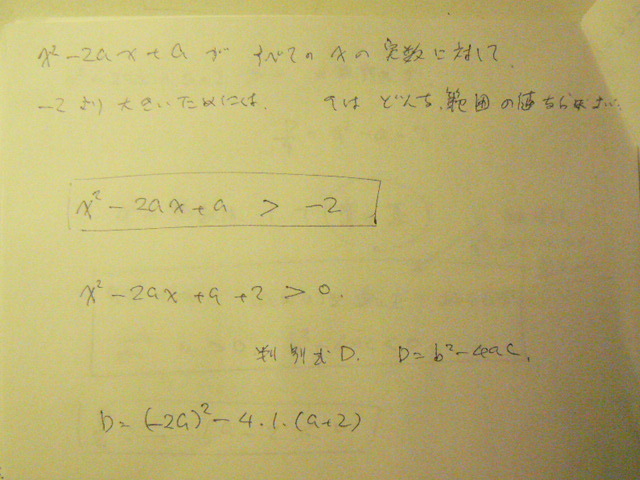 x² - 2ax + a が すべての x の 実数に対して
-2 より 大きいためには、 aは どんな 範囲 の値ならばよい
x² - 2ax + a > -2
x² - 2ax + a + 2 > 0.
判別式 D. D = b² - 4ac.
D = (-2a)² - 4.1.(a+2)